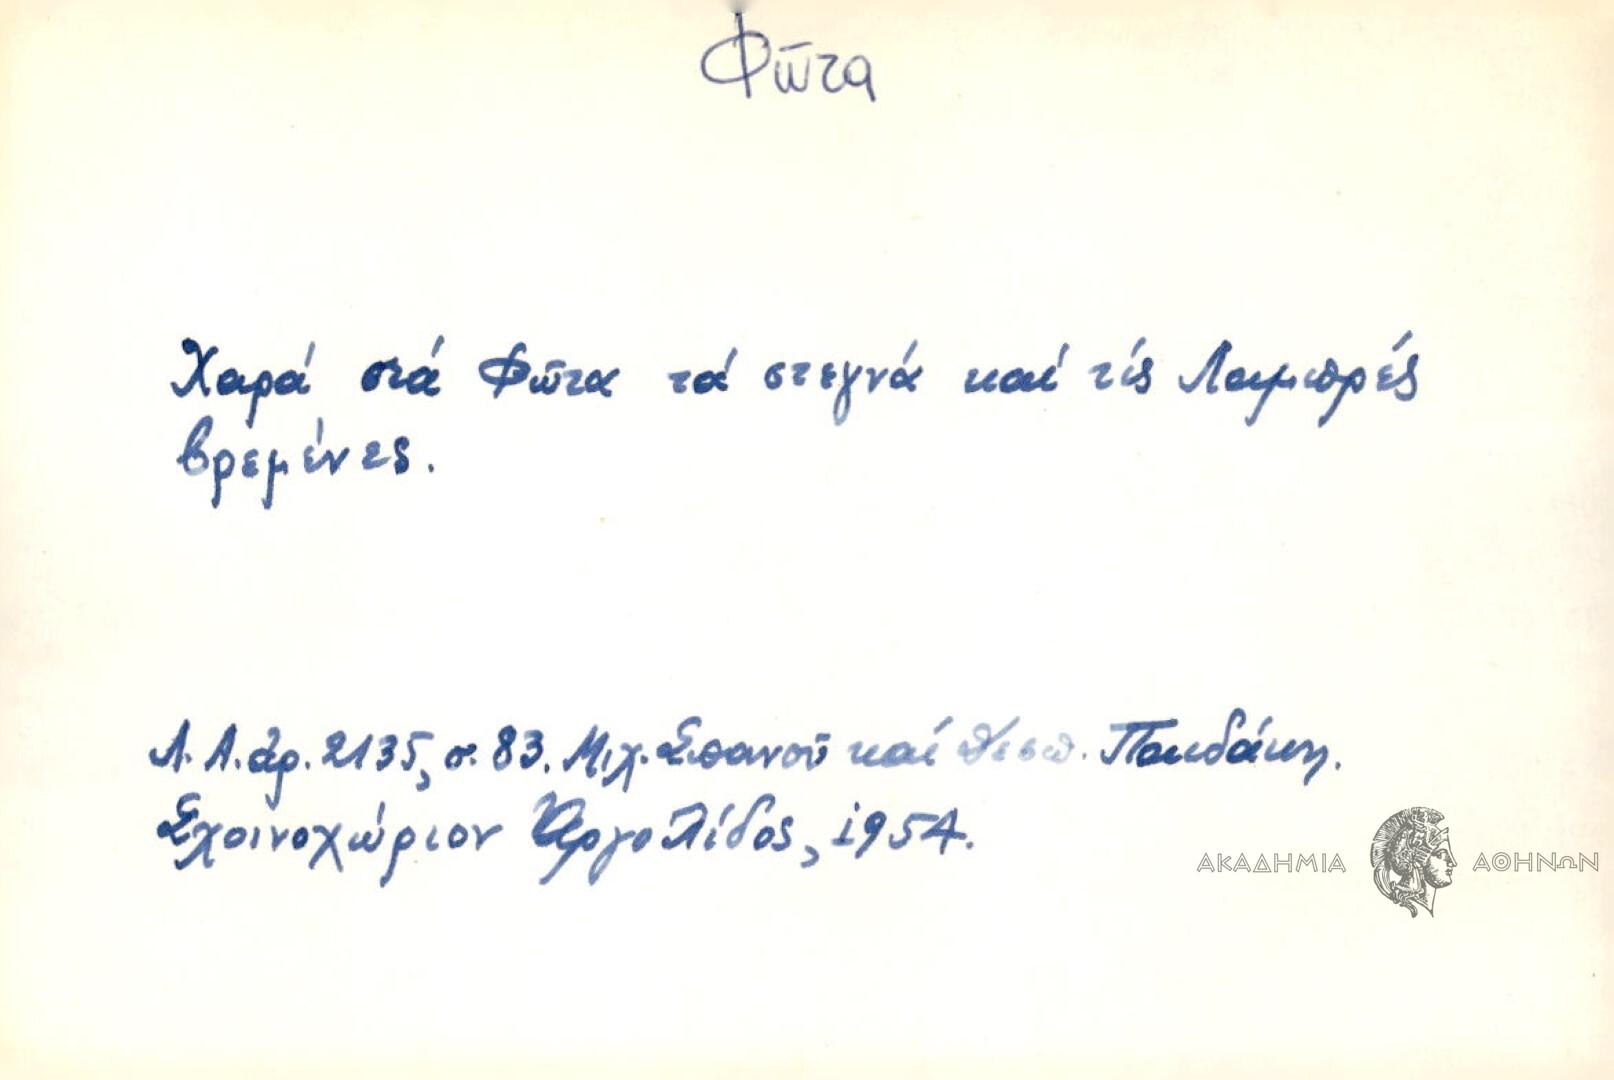 Φῶτα
Χαρά στά Φῶτα τά στεγνά καί τίς Λαμπρές
βρεμένες.
Λ. Α. ἀρ. 2135, σ. 83. Μιχ. Σπανοῦ καί Θεσπ. Παιδάκη.
Σχοινοχώριον Ἀργολίδος, 1954.
ΑΚΑΔΗΜΙΑ ΑΘΗΝΩΝ